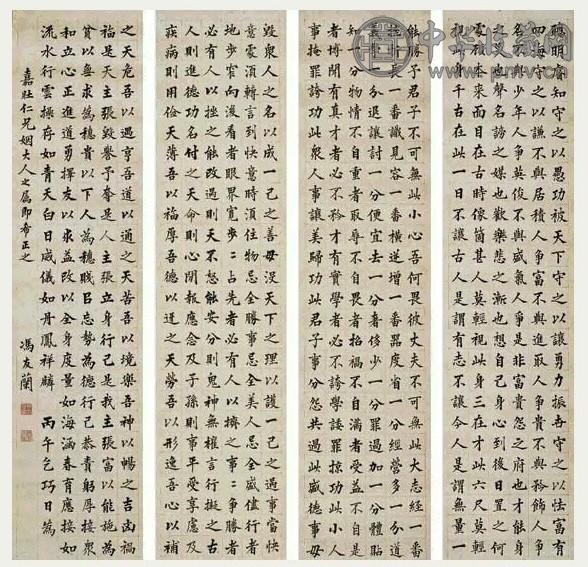 聰明睿知守之以愚功被天下守之以讓勇力振吾守之以怯富有
四海守之以謙不與居積人爭富不與進取人爭貴不與矜飾人爭
名不與少年人爭英俊不與盛氣人爭是非富貴怨之府也才能身
也聲名謗之媒也歡樂悲之漸也
本來面目在古時像箇甚人莫輕視此身三在才此六尺莫輕
視此生千古在此一日不讓古人是謂有志不讓今人是謂無量一
能勝千君子不可無此小心吾何畏彼丈夫不可無此大志經一番
長一番識見容一番橫逆增一番器度省一分經營多一分道
義學一分退讓討一分便宜去一分奢侈少一分罪過加一分體貼
知一分物情不自重者取辱不自畏者招禍不自滿者受益不自是
者博聞有真才者必不矜才有實學者必不誇學諉罪掠功此小人
事掩罪誇功此眾人事讓美歸功此君子事分怨共過此盛德事毋
毀眾人之名以成一己之善毋沒天下之理以護一己之過事當快
意處須轉言到快意時須住物忌全勝事忌全美人忌全盛儘行者
地步窄向後看者眼界寬步步占先者必有人以擠之事事爭勝者
必有人以挫之能改過則天不怒能安分則鬼神無權言行擬之古
人則進德功名付之天命則心閒報應念及子孫則事平受享慮及
疾病則用儉天薄吾以福厚吾德以迓之天勞吾以形逸吾心以補
之天危吾以遇亨吾道以通之天苦吾以境樂吾神以暢之吉凶禍
福是天主張毀譽予奪是人主張立身行己是我主張富以能施為
貧以無求為德貴以下人為德賤以忘勢為德行己恭責躬厚接眾
和立心正進道勇擇友以求益改過以全身度量如海涵春育應接如
流水行雲操存如青天白日威儀如丹鳳祥麟 丙午乞巧日為
嘉壯仁兄姻大人之屬即希正之 馮友蘭
中华收藏网